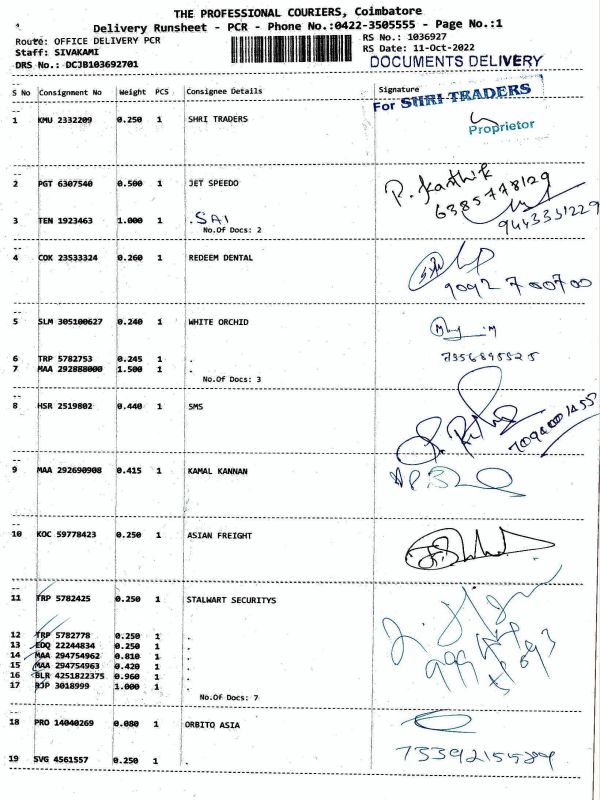 THE PROFESSIONAL COURIERS, Coimbatore
Delivery Runsheet - PCR - Phone No.:0422-3505555 - Page No.:1
Route: OFFICE DELIVERY PCR
Staff: SIVAKAMI
DRS No.: DCJB103692701
RS No.: 1036927
RS Date: 11-Oct-2022
DOCUMENTS DELIVERY
S No Consignment No Weight PCS Consignee Details Signature
For SHRI TRADERS
1 KMU 2332209 0.250 1 SHRI TRADERS
Proprietor
2 PGT 6307540 0.500 1 JET SPEEDO
P. Karthik
6385778129
3 TEN 1923463 1.000 1 .SAI
9443351229
No.Of Docs: 2
4 COK 23533324 0.260 1 REDEEM DENTAL
9092 700700
5 SLM 305100627 0.240 1 WHITE ORCHID
6 TRP 5782753 0.245 1 .
7356895525
7 MAA 292888000 1.500 1 .
No.Of Docs: 3
8 HSR 2519802 0.440 1 SMS
9 MAA 292690908 0.415 1 KAMAL KANNAN
10 KOC 59778423 0.250 1 ASIAN FREIGHT
11 TRP 5782425 0.250 1 STALWART SECURITYS
12 TRP 5782778 0.250 1 .
13 EDQ 22244834 0.250 1 .
14 MAA 294754962 0.810 1 .
15 MAA 294754963 0.420 1 .
16 BLR 4251822375 0.960 1 .
17 RJP 3018999 1.000 1 .
No.Of Docs: 7
18 PRO 14040269 0.080 1 ORBITO ASIA
19 SVG 4561557 0.250 1 .